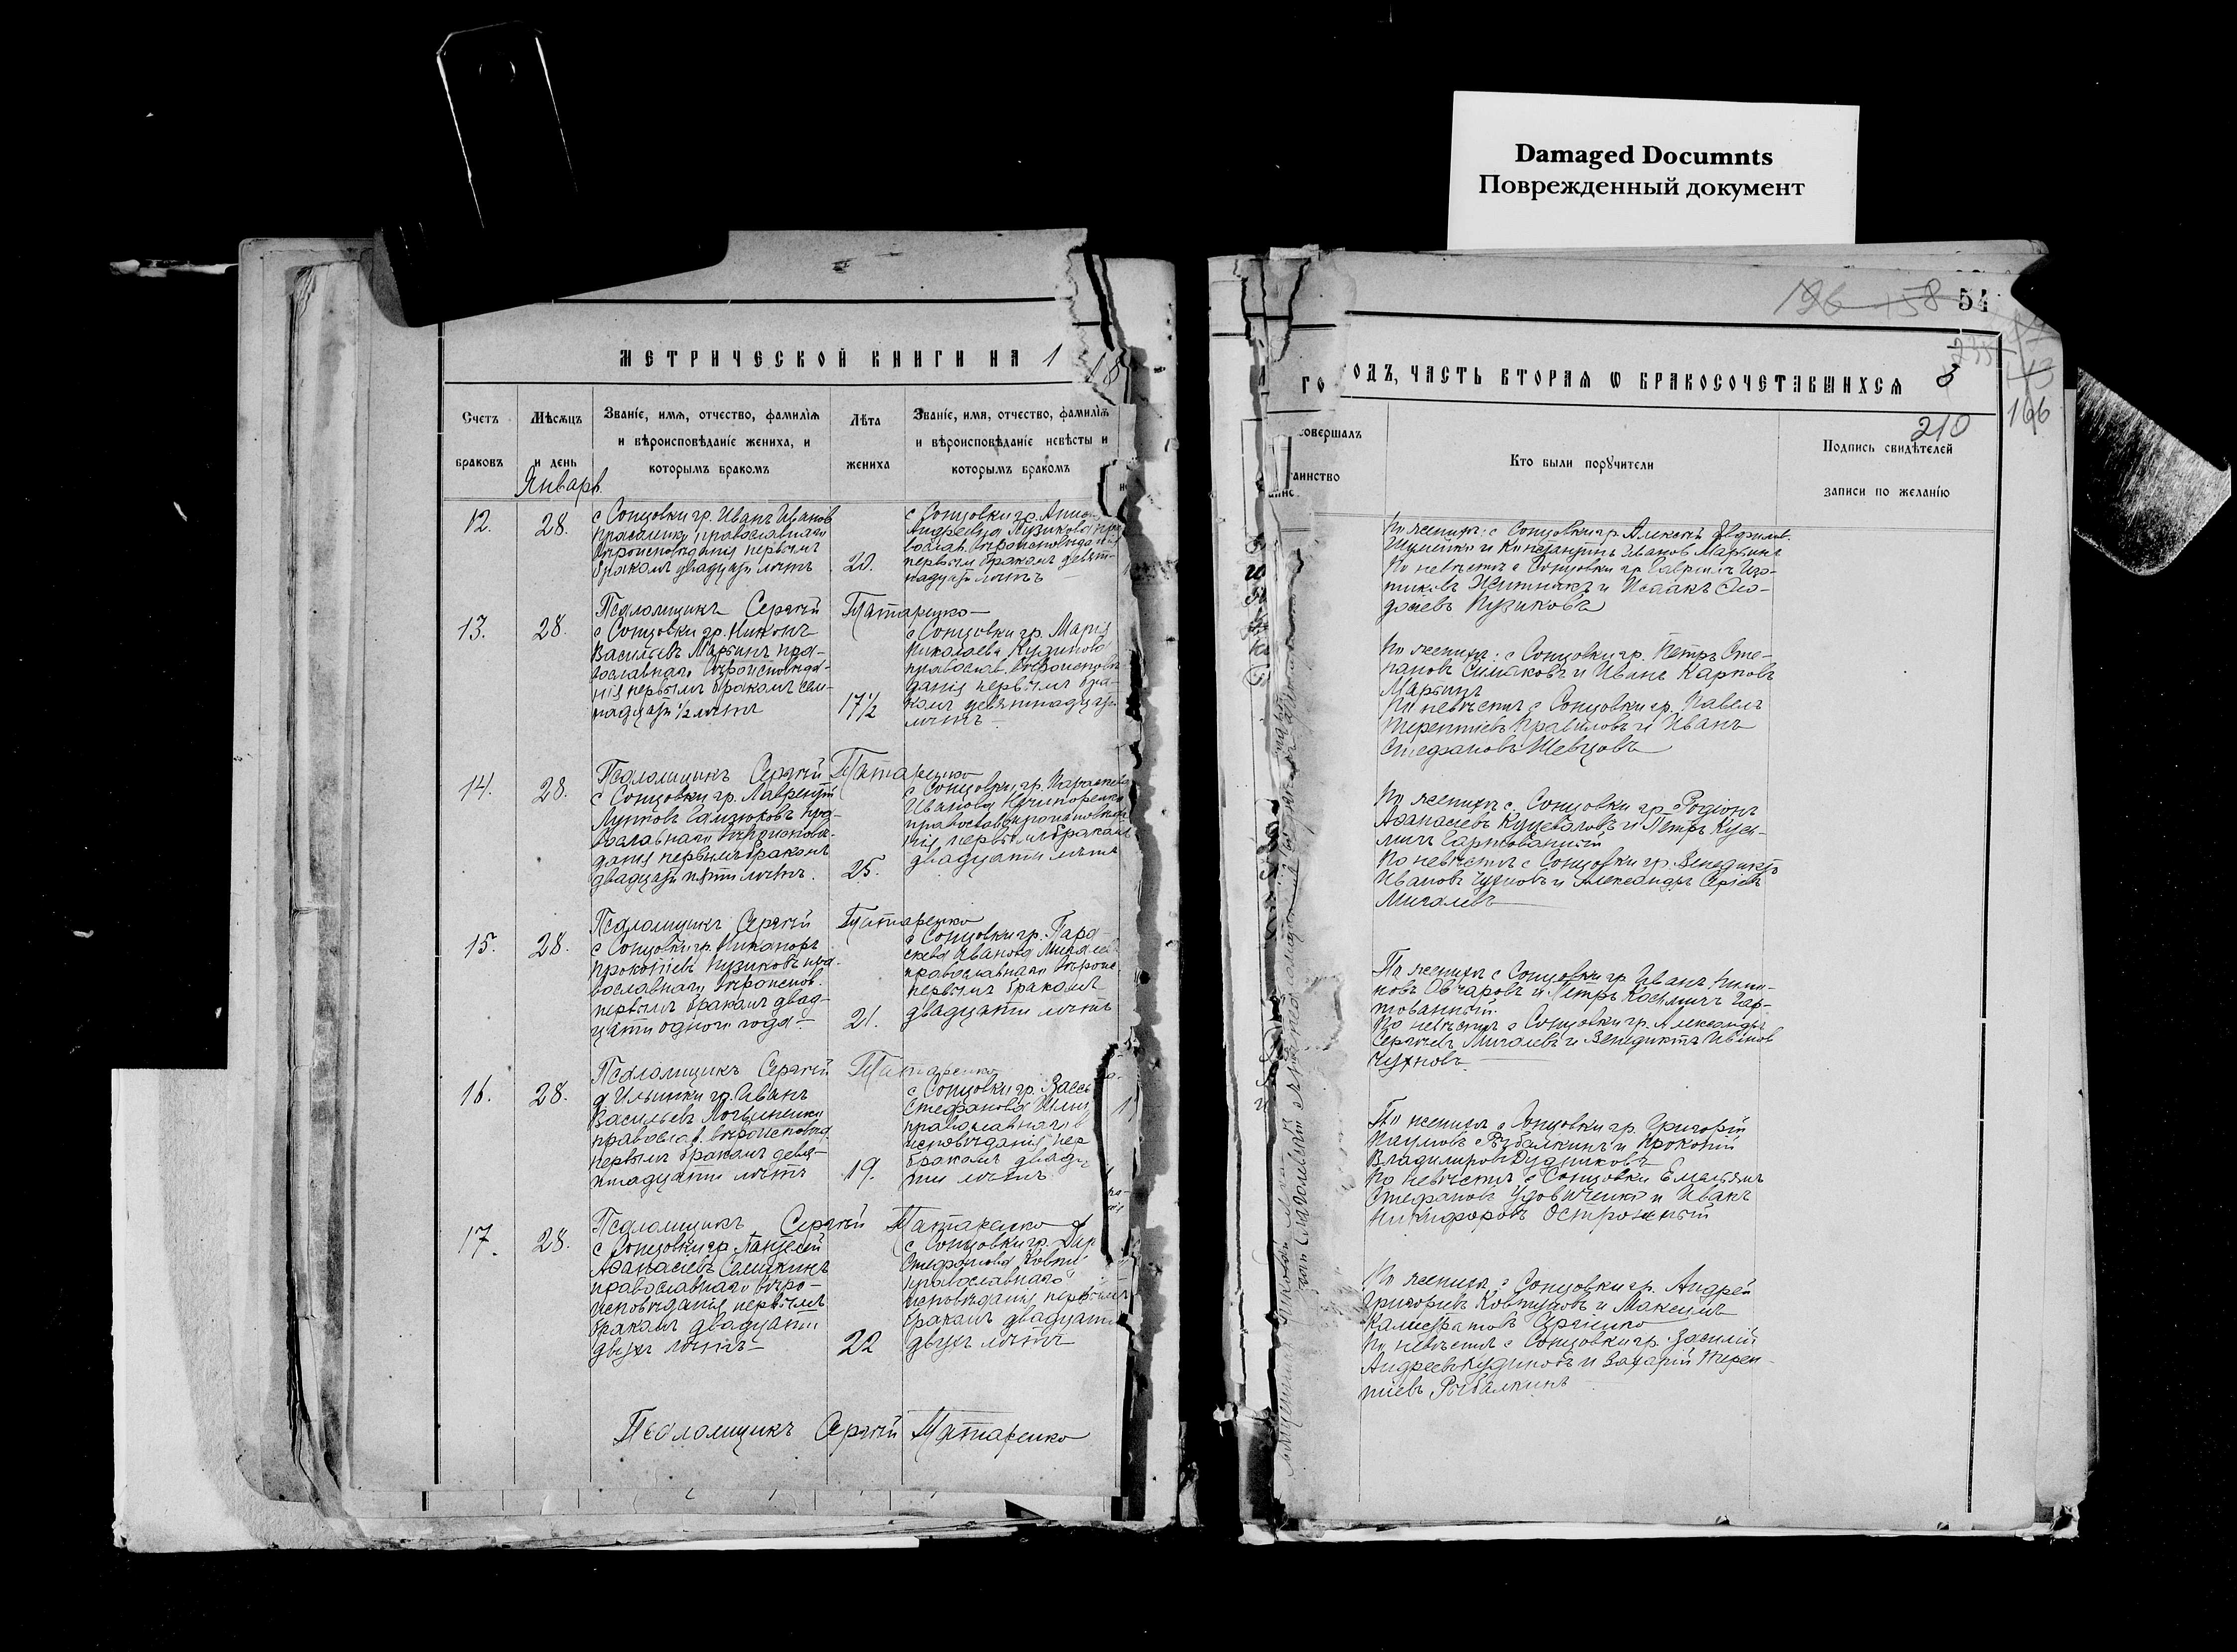 Damaged Documnts
Поврежденный документ
54
МЕТРИЧЕСКОЙ КНИГИ НА 1 18
ГОДЪ, ЧАСТЬ ВТОРАЯ Ѡ БРАКОСОЧЕТАВШИХСЯ
210
166
Счетъ
браковъ
Мѣсяцъ
и день
Январь
Званіе, имя, отчество, фамилія
и вѣроисповѣданіе жениха, и
которымъ бракомъ
Лѣта
жениха
Званіе, имя, отчество, фамилія
и вѣроисповѣданіе невѣсты и
которымъ бракомъ
совершалъ
таинство
Кто были поручители
Подпись свидѣтелей
записи по желанію
12.
28.
с Сонцовки гр. Иванъ Иванов
православнаго
вѣроисповѣданія первымъ
бракомъ двадцати лѣтъ
20.
с Сонцовки гр. Анна
Андреевна Пузикова
вослав. вѣроисповѣданія
первым бракомъ девят-
надцати лѣтъ
По жениху: с Сонцовки гр. Алексѣй
и Константинъ Иванов Марьинъ
По невѣстѣ с Сонцовки гр. Гавріилъ
Житникъ и Исаакъ Ѳео-
досіевъ Пузиковъ
Псаломщикъ Сергѣй Татаренко
13.
28.
с Сонцовки гр. Никонъ
Васильевъ Марьинъ пра-
вославнаго вѣроисповѣда-
нія первымъ бракомъ сем-
надцати ½ лѣтъ
17½
с Сонцовки гр. Марія
Николаева Кудинова
православ. вѣроисповѣ-
данія первымъ бра-
комъ девятнадцати
лѣтъ
По жениху: с Сонцовки гр. Петръ Сте-
пановъ Симаковъ и Иванъ Карповъ
Марьинъ
По невѣстѣ с Сонцовки гр. Павелъ
Терентіевъ Правиловъ и Иванъ
Стефановъ Шевцовъ
Псаломщикъ Сергѣй Татаренко
14.
28.
с Сонцовки гр. Лаврентій
Лукковъ пра-
вославнаго вѣроисповѣ-
данія первымъ бракомъ
двадцати пяти лѣтъ.
25.
с Сонцовки гр. Параскева
Иванова Ничипоренко
православ. вѣроисповѣда-
нія первымъ бракомъ
двадцати лѣтъ
По жениху с. Сонцовки гр. Родіонъ
Аѳанасіевъ и Петръ Кузь-
мичъ Гартованный
По невѣстѣ с Сонцовки гр. Венедиктъ
Ивановъ Чухновъ и Александръ Сергѣевъ
Мигалевъ
Псаломщикъ Сергѣй Татаренко
15.
28.
с Сонцовки гр. Никаноръ
Прокопіевъ Пузиковъ пра-
вославнаго вѣроисповѣд.
первымъ бракомъ двад-
цати одного года
21.
с Сонцовки гр. Пара-
скева Иванова Мигалев
православнаго вѣроис-
первымъ бракомъ
двадцати лѣтъ
По жениху с Сонцовки гр. Иванъ
Овчаровъ и Петръ Косьмичъ Гар-
тованный.
По невѣстѣ с Сонцовки гр. Александръ
Сергѣевъ Мигалевъ и Венедиктъ Иванов
Чухновъ
Псаломщикъ Сергѣй Татаренко
16.
28.
д Ильинки гр. Иванъ
Васильевъ Логвиненко
православ. вѣроисповѣд.
первымъ бракомъ девят-
надцати лѣтъ
19.
с Сонцовки гр.
Стефанова
православнаго в
исповѣданія пер
бракомъ двадц
ти лѣтъ
По жениху с Сонцовки гр. Григорій
Наумовъ Рыбалкинъ и Прокопій
Владиміровъ Дудниковъ
По невѣстѣ с Сонцовки Емельянъ
Стефановъ Удовиченко и Иванъ
Никифоровъ Острожный
Псаломщикъ Сергѣй Татаренко
17.
28.
с Сонцовки гр. Пантелей
Аѳанасіевъ Семикинъ
православнаго вѣро-
исповѣданія первымъ
бракомъ двадцати
двухъ лѣтъ
22
с Сонцовки гр. Дар
Стефанова Ковту
православнаго
исповѣданія первымъ
бракомъ двадцати
двухъ лѣтъ
По жениху с Сонцовки гр. Андрей
Григорьевъ Ковтуновъ и Максимъ
Калистратовъ Сергіенко
По невѣстѣ с Сонцовки гр. Василій
Андреевъ Кудиновъ и Захарій Терен-
тіевъ Рыбалкинъ
Псаломщикъ Сергѣй Татаренко